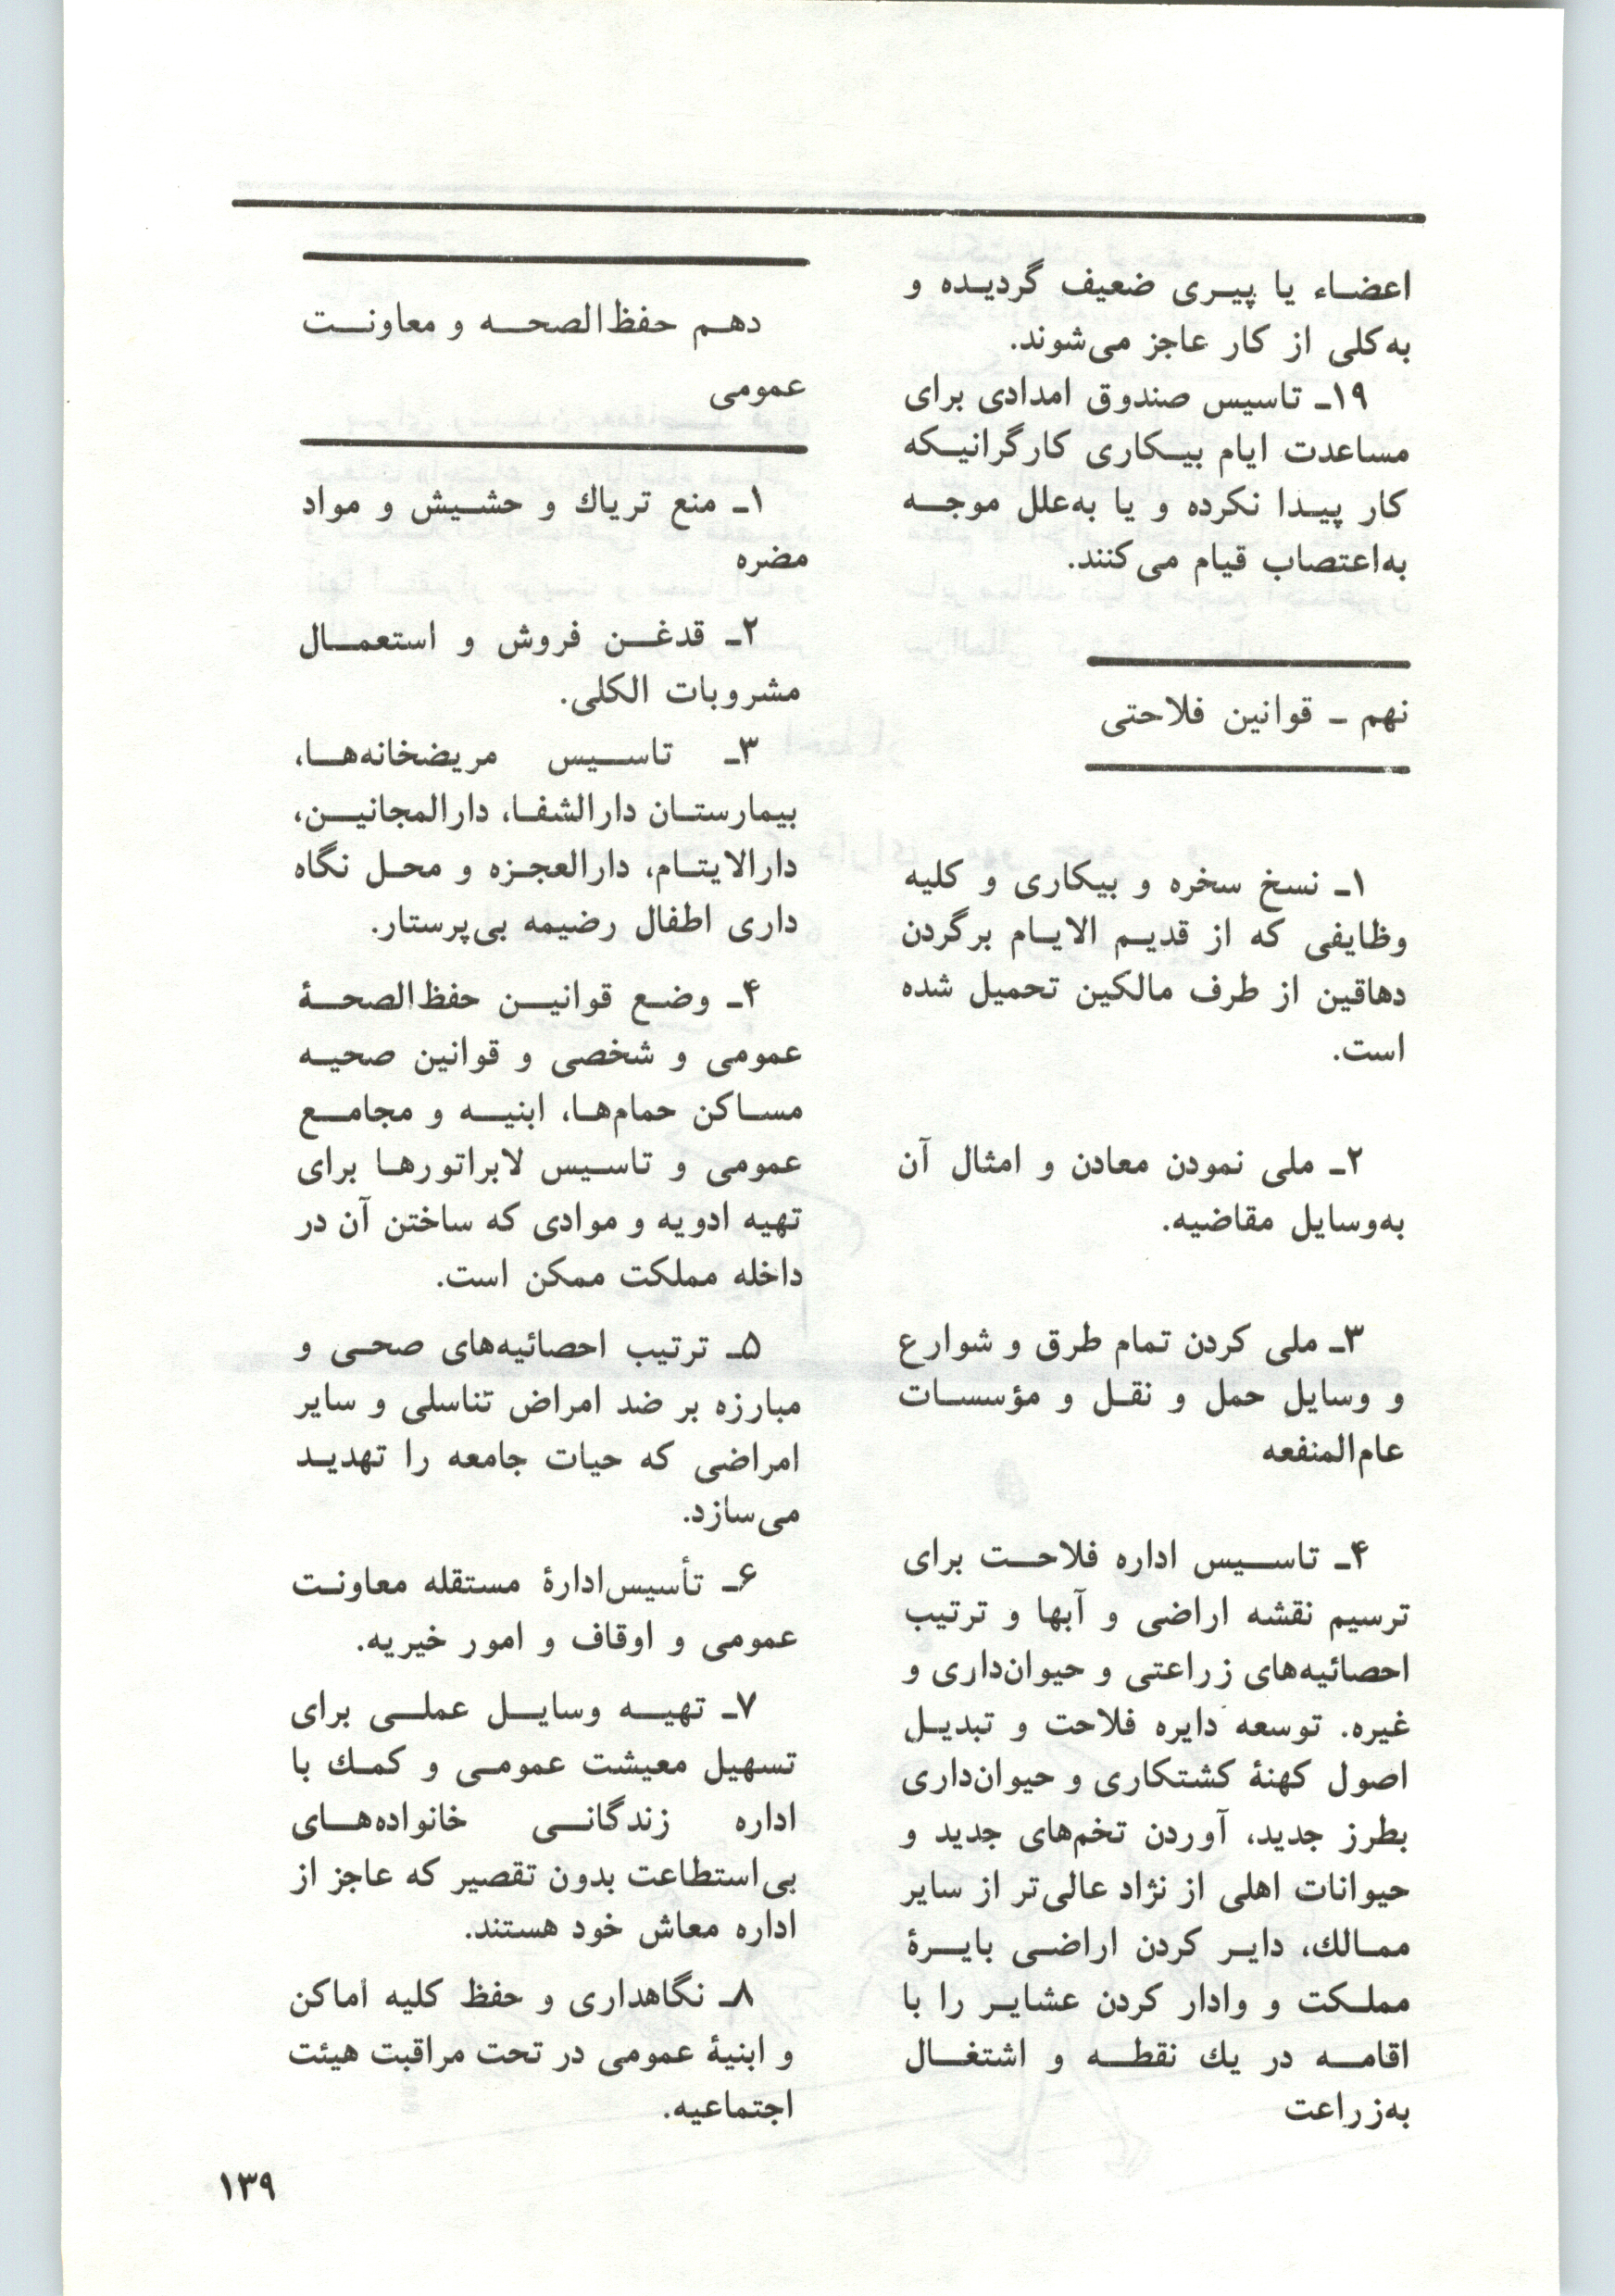 اعضاء یا پیری ضعیف گردیده و
به‌کلی از کار عاجز می‌شوند.
۱۹ـ تاسیس صندوق امدادی برای
مساعدت ایام بیکاری کارگرانیکه
کار پیدا نکرده و یا به‌علل موجه
به‌اعتصاب قیام می‌کنند.
نهم ـ قوانین فلاحتی
۱ـ نسخ سخره و بیکاری و کلیه
وظایفی که از قدیم الایام برگردن
دهاقین از طرف مالکین تحمیل شده
است.
۲ـ ملی نمودن معادن و امثال آن
به‌وسایل مقاضیه.
۳ـ ملی کردن تمام طرق و شوارع
و وسایل حمل و نقل و مؤسسات
عام‌المنفعه
۴ـ تاسیس اداره فلاحت برای
ترسیم نقشه اراضی و آبها و ترتیب
احصائیه‌های زراعتی و حیوان‌داری و
غیره. توسعه دایره فلاحت و تبدیل
اصول کهنهٔ کشتکاری و حیوان‌داری
بطرز جدید، آوردن تخم‌های جدید و
حیوانات اهلی از نژاد عالی‌تر از سایر
ممالك، دایر کردن اراضی بایرهٔ
مملکت و وادار کردن عشایر را با
اقامه در یك نقطه و اشتغال
به‌زراعت
دهم حفظ‌الصحه و معاونت
عمومی
۱ـ منع تریاك و حشیش و مواد
مضره
۲ـ قدغن فروش و استعمال
مشروبات الکلی.
۳ـ تاسیس مریضخانه‌ها،
بیمارستان دارالشفا، دارالمجانین،
دارالایتام، دارالعجزه و محل نگاه
داری اطفال رضیمه بی‌پرستار.
۴ـ وضع قوانین حفظ‌الصحهٔ
عمومی و شخصی و قوانین صحیه
مساکن حمام‌ها، ابنیه و مجامع
عمومی و تاسیس لابراتورها برای
تهیه ادویه و موادی که ساختن آن در
داخله مملکت ممکن است.
۵ـ ترتیب احصائیه‌های صحی و
مبارزه بر ضد امراض تناسلی و سایر
امراضی که حیات جامعه را تهدید
می‌سازد.
۶ـ تأسیس‌ادارهٔ مستقله معاونت
عمومی و اوقاف و امور خیریه.
۷ـ تهیه وسایل عملی برای
تسهیل معیشت عمومی و کمك با
اداره زندگانی خانواده‌های
بی‌استطاعت بدون تقصیر که عاجز از
اداره معاش خود هستند.
۸ـ نگاهداری و حفظ کلیه اماکن
و ابنیهٔ عمومی در تحت مراقبت هیئت
اجتماعیه.
۱۳۹